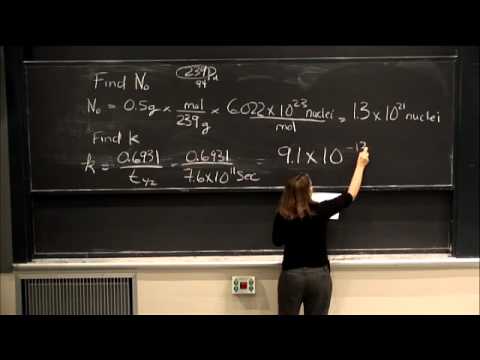 Find N₀ ²³⁹₉₄Pu
N₀ = 0.5g × mol/239g × 6.022 × 10²³ nuclei/mol = 1.3 × 10²¹ nuclei
Find k
k = 0.6931/t₁/₂ = 0.6931/7.6×10¹¹ sec = 9.1 × 10⁻¹³